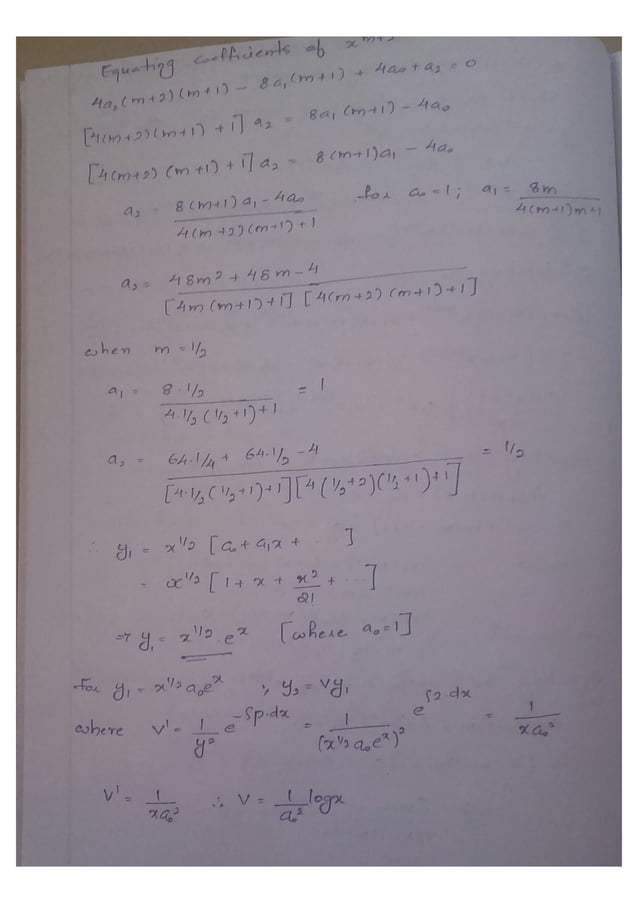 Equating coefficients of x^{m+2}
4a₂(m+2)(m+1) - 8a₁(m+1) + 4a₀ + a₂ = 0
[4(m+2)(m+1) + 1] a₂ = 8a₁(m+1) - 4a₀
[4(m+2)(m+1) + 1] a₂ = 8(m+1)a₁ - 4a₀
a₂ = (8(m+1)a₁ - 4a₀) / (4(m+2)(m+1)+1) for a₀ = 1; a₁ = 8m / (4(m+1)m+1)
a₂ = (48m² + 48m - 4) / ([4m(m+1)+1] [4(m+2)(m+1)+1])
when m = 1/2
a₁ = (8·1/2) / (4·1/2(1/2+1)+1) = 1
a₂ = (64·1/4 + 64·1/2 - 4) / ([4·1/2(1/2+1)+1][4(1/2+2)(1/2+1)+1]) = 1/2
∴ y₁ = x^{1/2} [a₀ + a₁x + ...]
= x^{1/2} [1 + x + x²/2! + ...]
⇒ y₁ = x^{1/2} e^x [where a₀ = 1]
for y₁ = x^{1/2} a₀e^x ; y₂ = vy₁
where v' = (1/y²) e^{-∫p·dx} = (1/(x^{1/2} a₀e^x)²) e^{∫2·dx} = 1/(xa₀²)
v' = 1/(xa₀²) ∴ v = (1/a₀²) logx